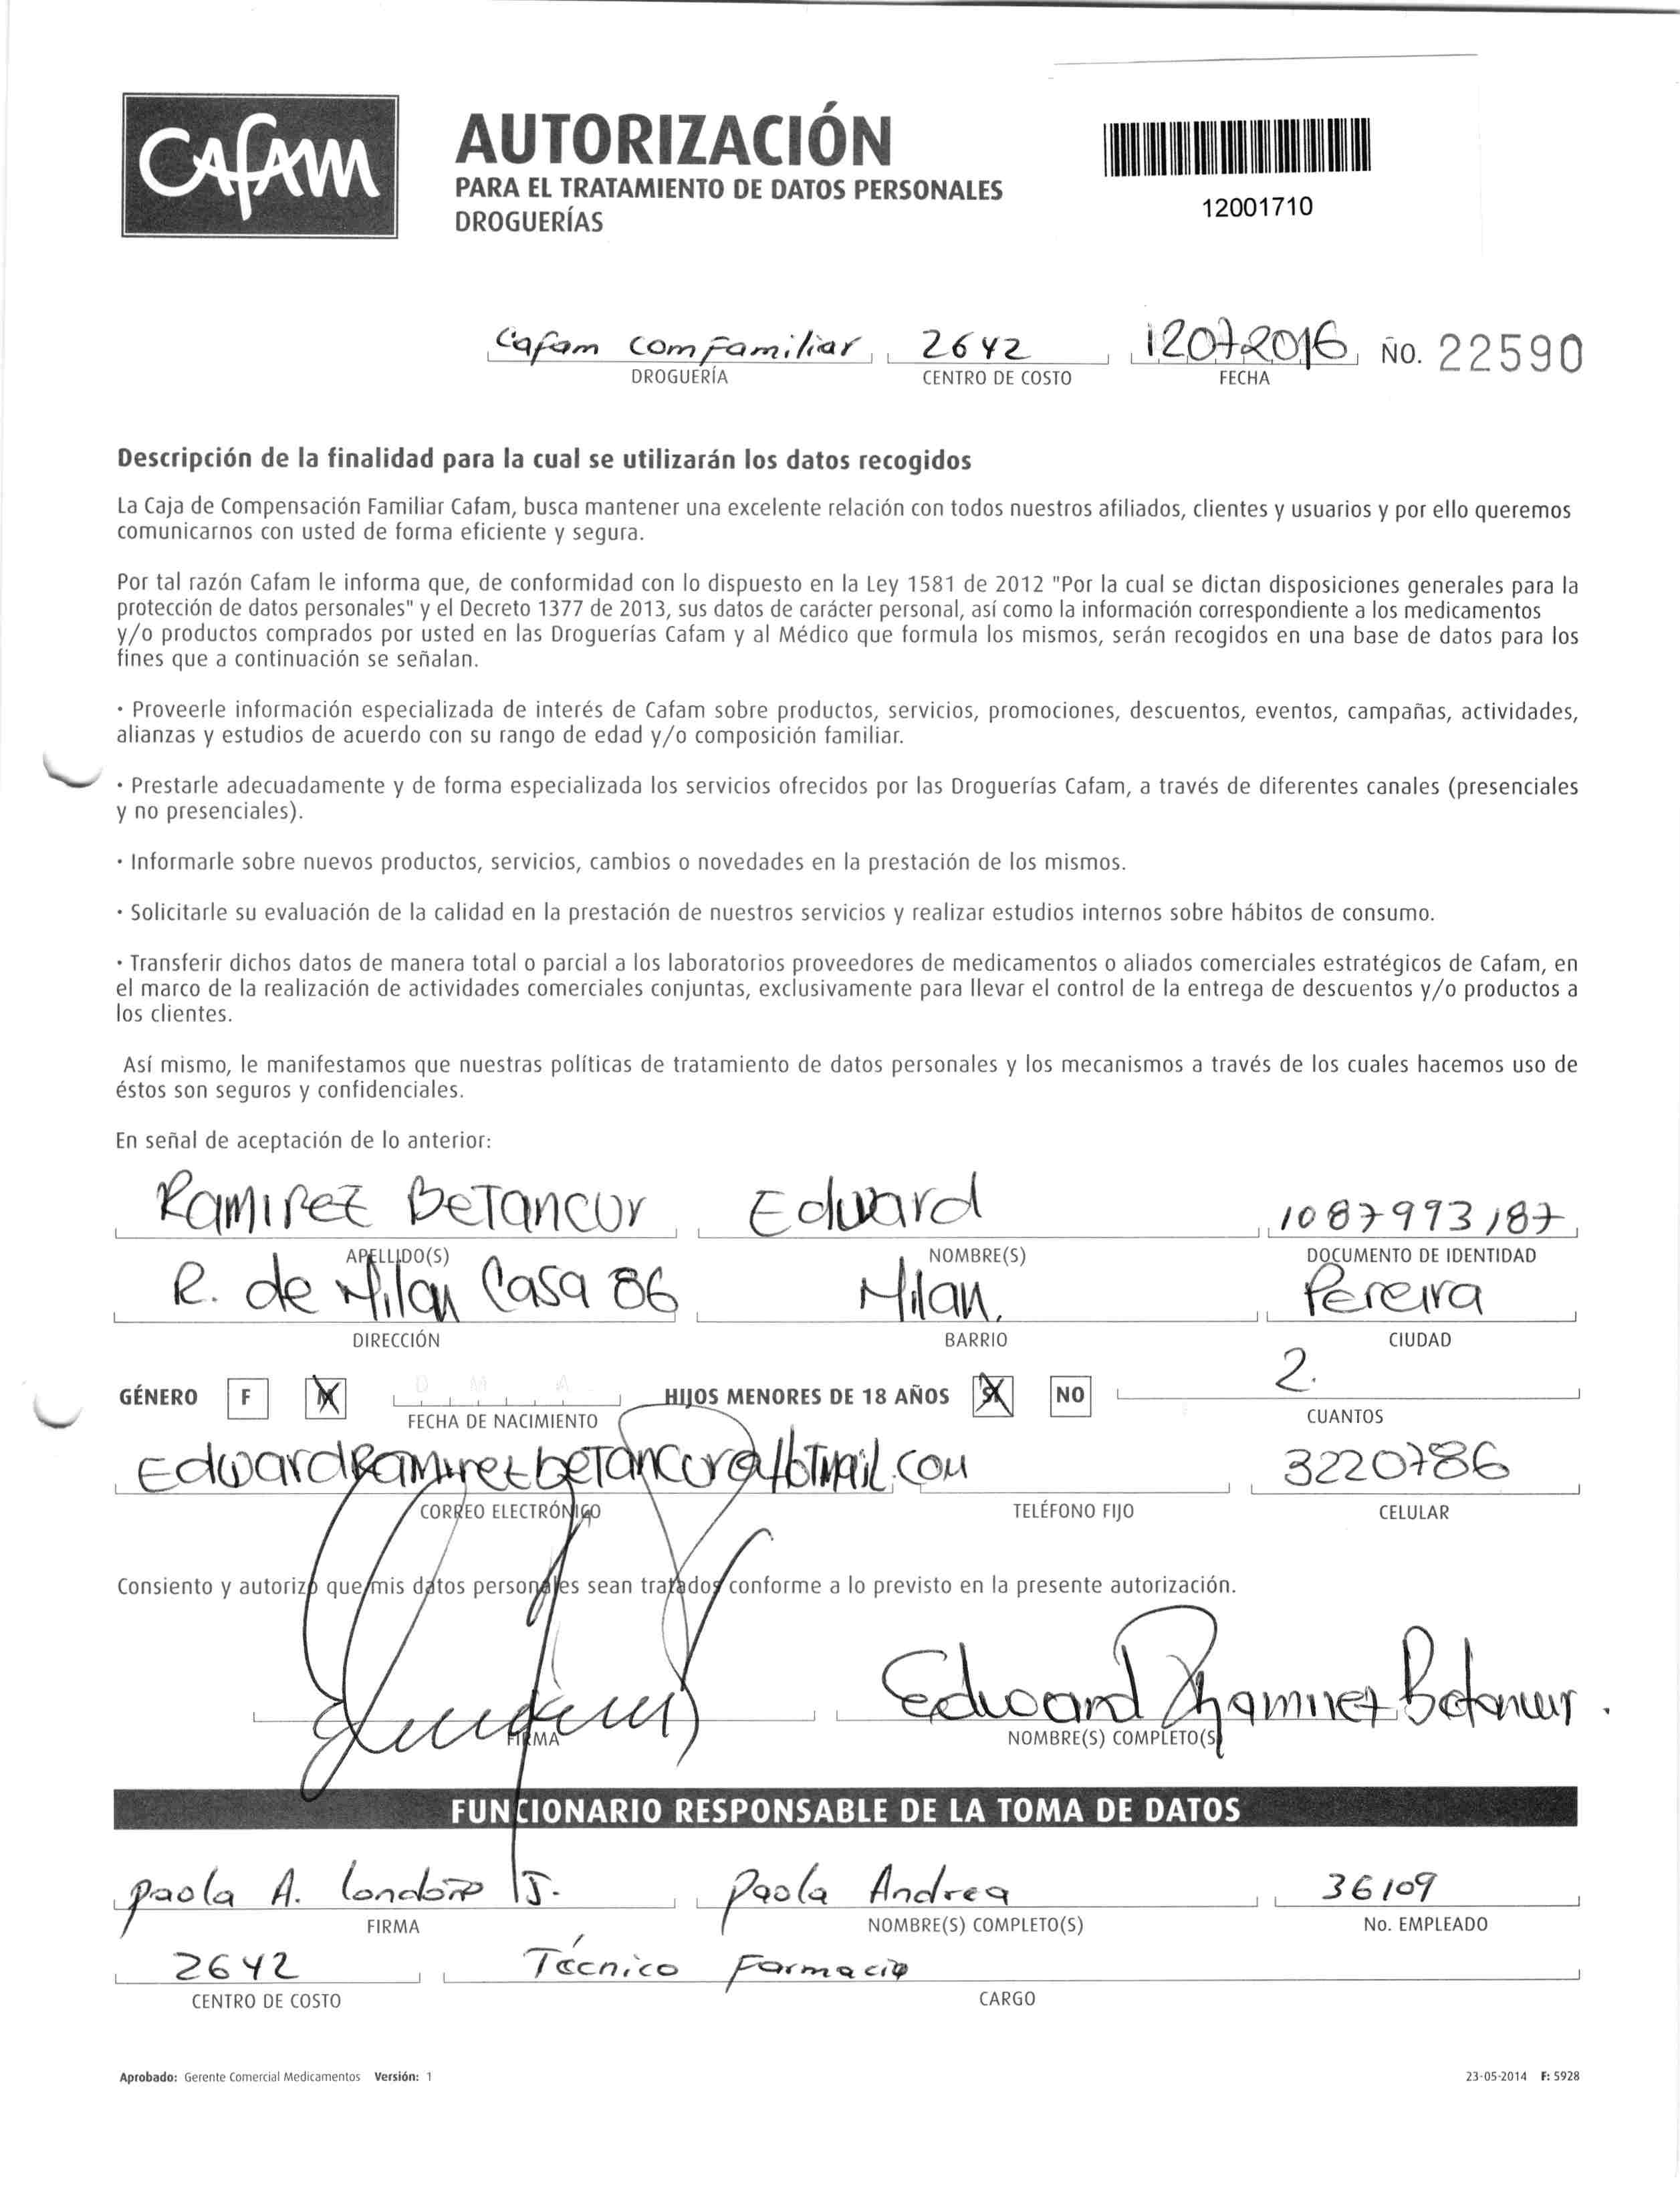 CAFAM
AUTORIZACIÓN
PARA EL TRATAMIENTO DE DATOS PERSONALES
DROGUERÍAS
12001710
Cafam comFamiliar 2642 12072016 ÑO. 22590
DROGUERÍA CENTRO DE COSTO FECHA
Descripción de la finalidad para la cual se utilizarán los datos recogidos
La Caja de Compensación Familiar Cafam, busca mantener una excelente relación con todos nuestros afiliados, clientes y usuarios y por ello queremos
comunicarnos con usted de forma eficiente y segura.
Por tal razón Cafam le informa que, de conformidad con lo dispuesto en la Ley 1581 de 2012 "Por la cual se dictan disposiciones generales para la
protección de datos personales" y el Decreto 1377 de 2013, sus datos de carácter personal, así como la información correspondiente a los medicamentos
y/o productos comprados por usted en las Droguerías Cafam y al Médico que formula los mismos, serán recogidos en una base de datos para los
fines que a continuación se señalan.
· Proveerle información especializada de interés de Cafam sobre productos, servicios, promociones, descuentos, eventos, campañas, actividades,
alianzas y estudios de acuerdo con su rango de edad y/o composición familiar.
· Prestarle adecuadamente y de forma especializada los servicios ofrecidos por las Droguerías Cafam, a través de diferentes canales (presenciales
y no presenciales).
· Informarle sobre nuevos productos, servicios, cambios o novedades en la prestación de los mismos.
· Solicitarle su evaluación de la calidad en la prestación de nuestros servicios y realizar estudios internos sobre hábitos de consumo.
· Transferir dichos datos de manera total o parcial a los laboratorios proveedores de medicamentos o aliados comerciales estratégicos de Cafam, en
el marco de la realización de actividades comerciales conjuntas, exclusivamente para llevar el control de la entrega de descuentos y/o productos a
los clientes.
Así mismo, le manifestamos que nuestras políticas de tratamiento de datos personales y los mecanismos a través de los cuales hacemos uso de
éstos son seguros y confidenciales.
En señal de aceptación de lo anterior:
Ramirez Betancur Edward 1087993187
APELLIDO(S) NOMBRE(S) DOCUMENTO DE IDENTIDAD
R. de Milan Casa 86 Milan. Pereira
DIRECCIÓN BARRIO CIUDAD
GÉNERO F M D M A HIJOS MENORES DE 18 AÑOS SI NO 2.
FECHA DE NACIMIENTO CUANTOS
EdwardRamirezbetancur@HotMail.com 3220786
CORREO ELECTRÓNICO TELÉFONO FIJO CELULAR
Consiento y autorizo que mis datos personales sean tratados conforme a lo previsto en la presente autorización.
Edward Rhamirez Betancur.
FIRMA NOMBRE(S) COMPLETO(S)
FUNCIONARIO RESPONSABLE DE LA TOMA DE DATOS
Paola A. Londoño J. Paola Andrea 36109
FIRMA NOMBRE(S) COMPLETO(S) No. EMPLEADO
2642 Técnico Farmacia
CENTRO DE COSTO CARGO
Aprobado: Gerente Comercial Medicamentos Versión: 1 23-05-2014 F: 5928